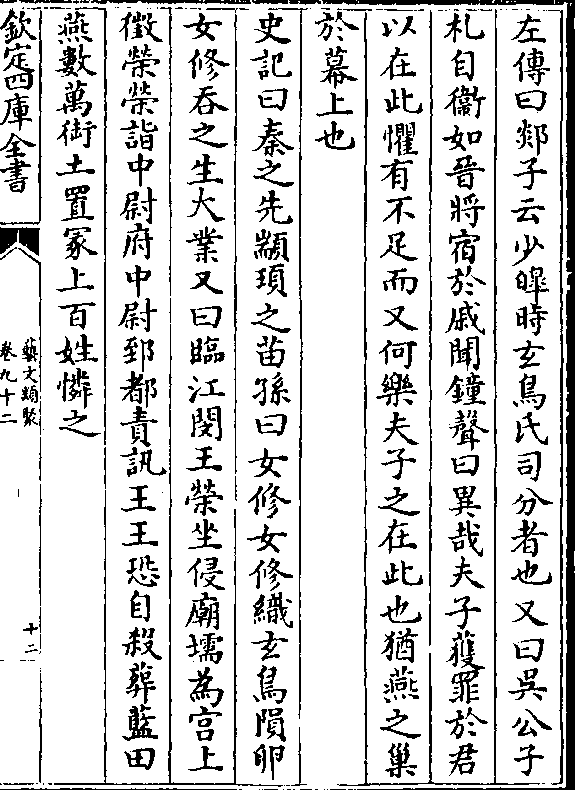 左傳曰郯子云少皥時玄鳥氏司分者也又曰吳公子
札自衞如晉將宿於戚聞鐘聲曰異哉夫子獲罪於君
以在此懼有不足而又何樂夫子之在此也猶燕之巢
於幕上也
史記曰秦之先顓頊之苗孫曰女修女修織玄鳥隕卵
女修吞之生大業又曰臨江閔王榮坐侵廟壖為宫上
徵榮榮詣中尉府中尉郅都責訊王王恐自殺葬藍田
燕數萬銜土置冢上百姓憐之
欽定四庫全書
藝文類聚
卷九十二
十二